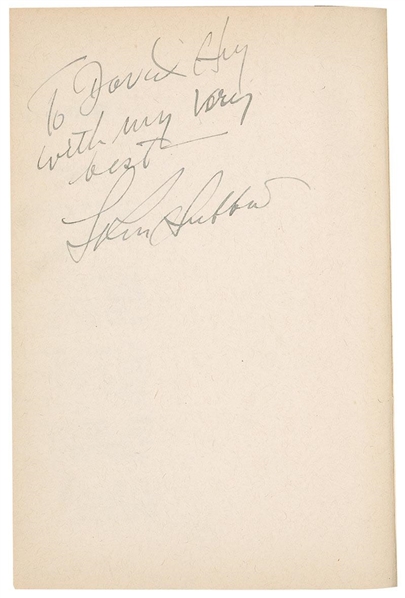 To David
with my very
best
L Ron Hubbard